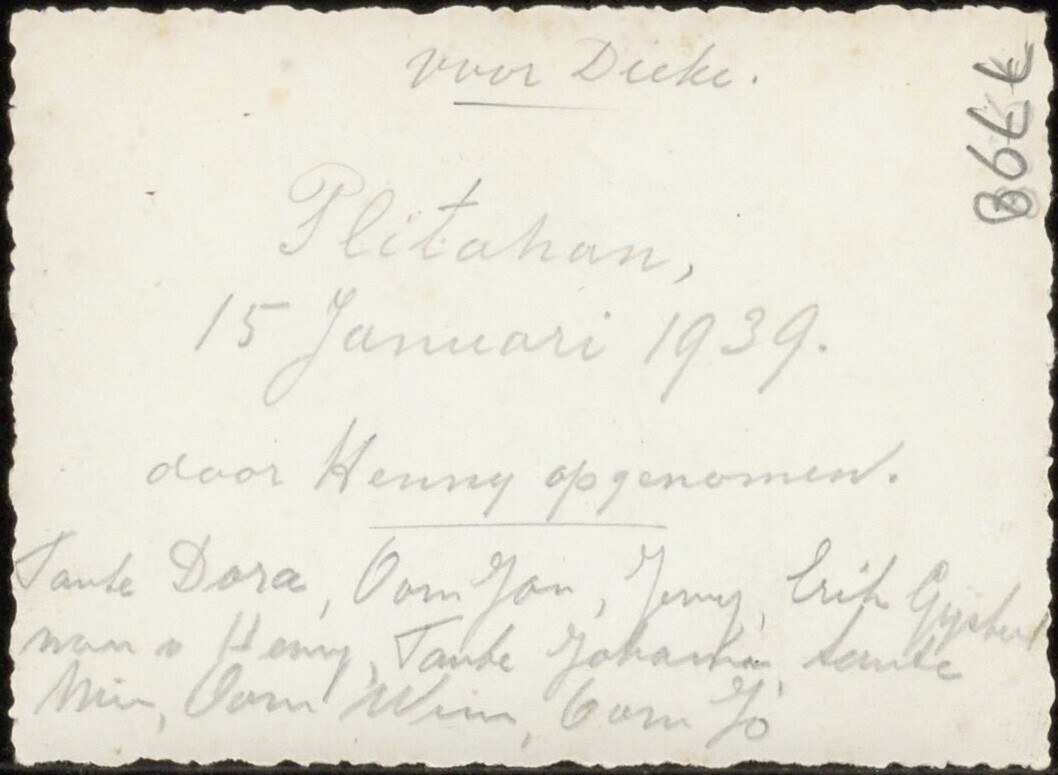 voor Dieke.
Plitahan,
15 Januari 1939.
door Henny opgenomen.
Tante Dora, Oom Jan, Jenny, Erik Gijsbert
man v Henny, Tante Johanna, tante
Mien, Oom Wim, Oom Jo